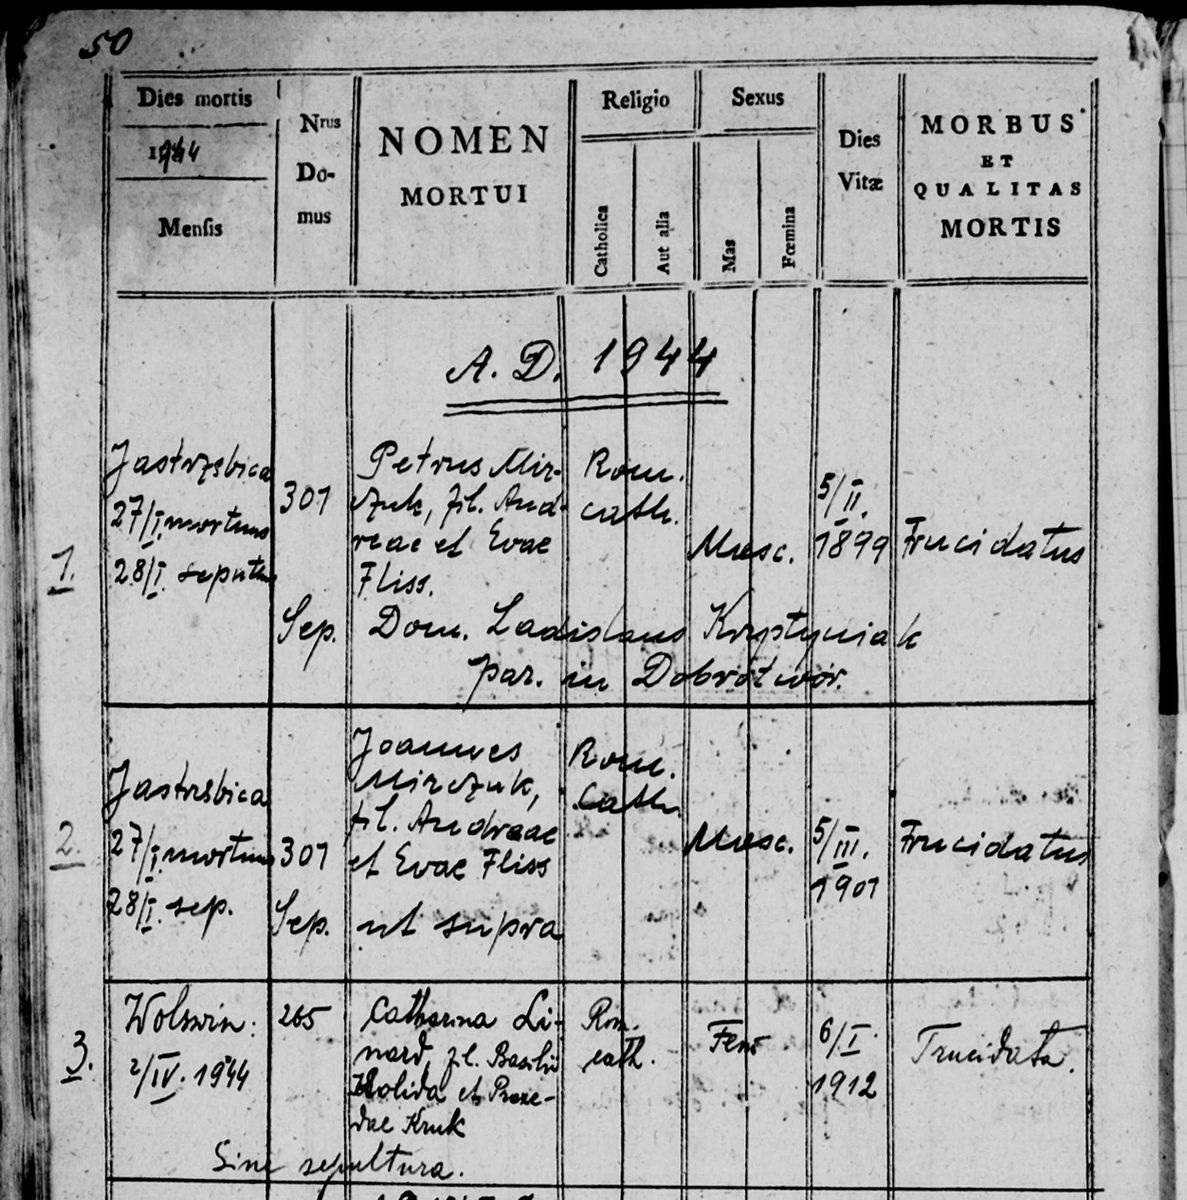 50
Dies mortis
1944
Mensis
Nrus
Do-
mus
NOMEN
MORTUI
Religio
Catholica
Aut alia
Sexus
Mas
Fœmina
Dies
Vitæ
MORBUS
ET
QUALITAS
MORTIS
A. D. 1944
1.
Jastrzsbica
27/I. mortuus
28/I. seputus
301
Petrus Mir-
czuk, fil. And-
reae et Evae
Fliss.
Rom.
cath.
Masc.
5/II.
1899
Trucidatus
Sep. Dom. Ladislaus Krzptyniak
par. in Dobrotwór.
2.
Jastrsbica
27/I. mortuus
28/I. sep.
301
Joannes
Mirczuk,
fil. Andreae
et Evae Fliss
Rom.
Cath.
Masc.
5/III.
1901
Trucidatus
Sep. ut supra
3.
Wolswin:
2/IV. 1944
265
Catharina Li-
nard, fil. Basilii
Holida et Praxe-
dae Kruk
Rom.
cath.
Fem.
6/I.
1912
Trucidata.
Sine sepultura.